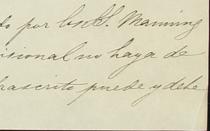 do por W. S. Manning
isional no haya de
nascrito puede y debe